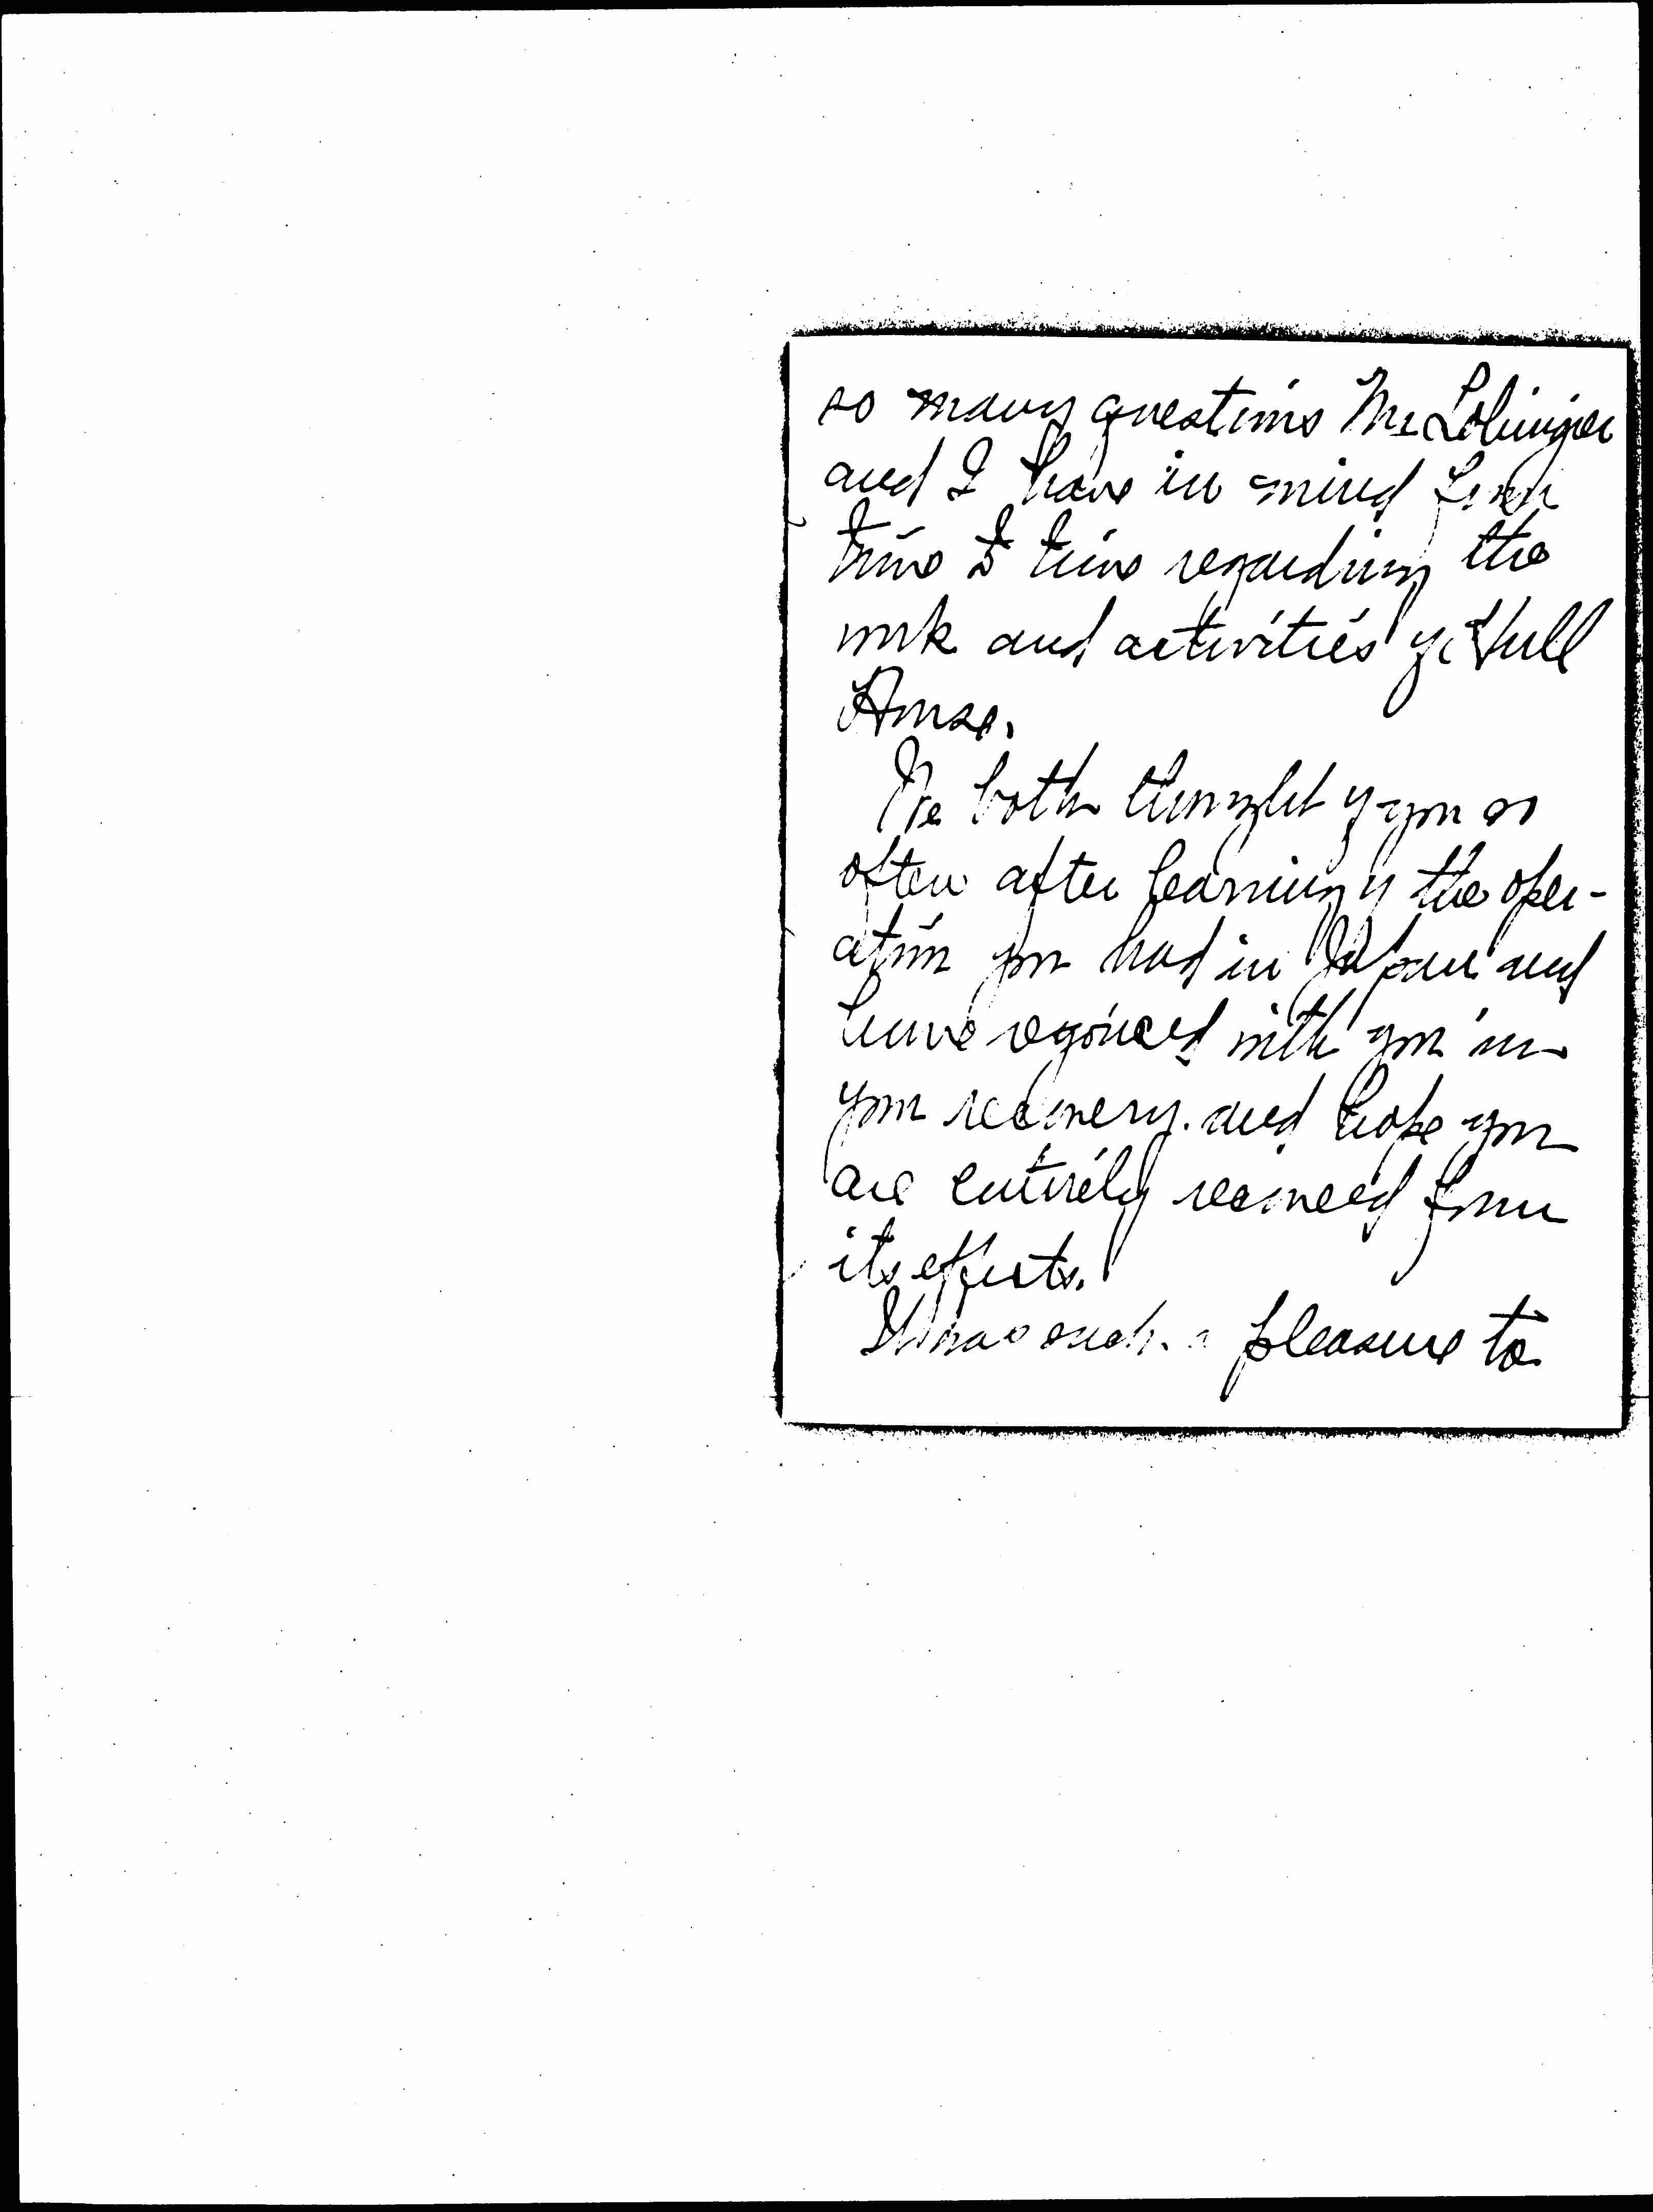 so many questions Mr Lobingier
and I have in mind from
time to time regarding the
work and activities of Hull
House.
We both thought of you so
often after learning of the oper-
ation you had in Japan and
have rejoiced with you in
your recovery. and hope you
are entirely recovered from
its effects.
It was such a pleasure to